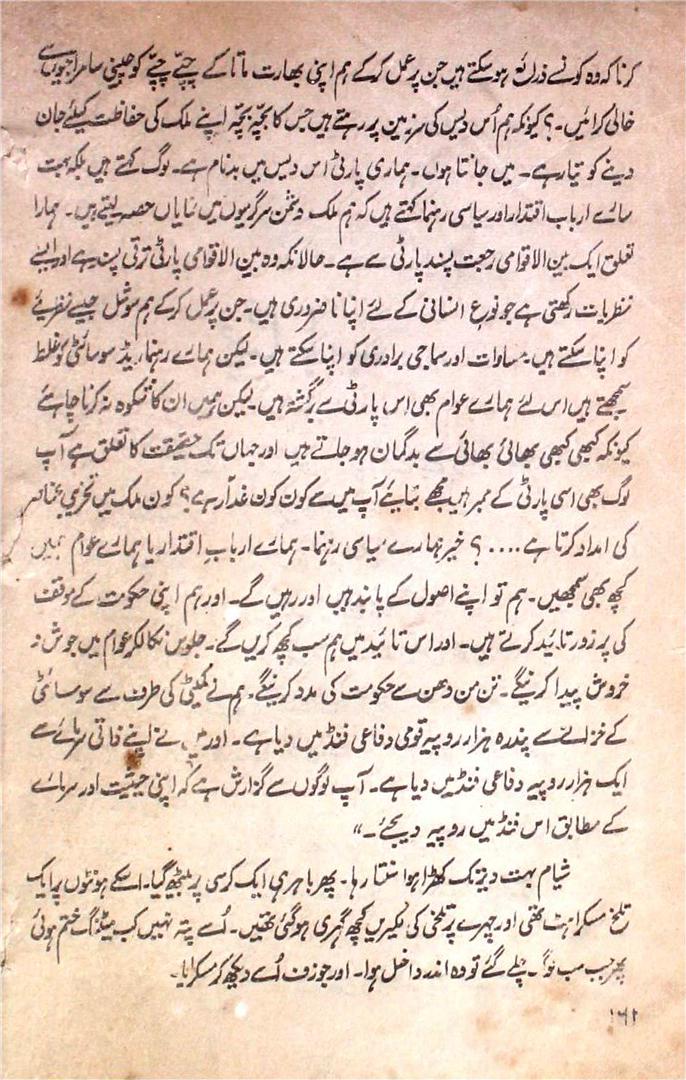 کرنا کہ وہ کونسے ذرائع ہو سکتے ہیں جن پر عمل کر کے ہم اپنی بھارت ماتا کے چپّے چپّے کو چینی سامراجیوں سے
خالی کرائیں۔؟ کیونکہ ہم اُس دیس کی سرزمین پر رہتے ہیں جس کا بچّہ بچّہ اپنے ملک کی حفاظت کیلئے جان
دینے کو تیار ہے۔ میں جانتا ہوں۔ ہماری پارٹی اس دیس میں بدنام ہے۔ لوگ کہتے ہیں بلکہ بہت
سارے ارباب اقتدار اور سیاسی رہنما کہتے ہیں کہ ہم ملک دشمن سرگرمیوں میں نمایاں حصہ لیتے ہیں۔ ہمارا
تعلق ایک بین الاقوامی رجعت پسند پارٹی سے ہے۔ حالانکہ وہ بین الاقوامی پارٹی ترقی پسند ہے اور ایسے
نظریات رکھتی ہے جو نوع انسانی کے لئے اپنانا ضروری ہیں۔ جن پر عمل کر کے ہم سوشل جیسے نظریئے
کو اپنا سکتے ہیں۔ مساوات اور سماجی برادری کو اپنا سکتے ہیں۔ لیکن ہمارے رہنما ریڈ سوسائٹی کو غلط
سمجھتے ہیں اس لئے ہمارے عوام بھی اس پارٹی سے برگشتہ ہیں۔ لیکن ہمیں ان کا شکوہ نہ کرنا چاہئے
کیونکہ کبھی کبھی بھائی بھائی سے بدگمان ہو جاتے ہیں اور جہاں تک حقیقت کا تعلق ہے آپ
لوگ بھی اسی پارٹی کے ممبر ہیں مجھے بتایئے آپ میں سے کون کون غدّار ہے؟ کون ملک میں تخریبی عناصر
کی امداد کرتا ہے....؟ خیر ہمارے سیاسی رہنما۔ ہمارے اربابِ اقتدار یا ہمارے عوام ہمیں
کچھ بھی سمجھیں۔ ہم تو اپنے اصول کے پابند ہیں اور رہیں گے۔ اور ہم اپنی حکومت کے موقف
کی پرزور تائید کرتے ہیں۔ اور اس تائید میں ہم سب کچھ کریں گے۔ جلوس نکالکر عوام میں جوش و
خروش پیدا کرینگے۔ تن من دھن سے حکومت کی مدد کرینگے۔ ہم نے کمیٹی کی طرف سے سوسائٹی
کے خزانے سے پندرہ ہزار روپیہ قومی دفاعی فنڈ میں دیا ہے۔ اور میں نے اپنے ذاتی سرمائے سے
ایک ہزار روپیہ دفاعی فنڈ میں دیا ہے۔ آپ لوگوں سے گزارش ہے کہ اپنی حیثیت اور سرمائے
کے مطابق اس فنڈ میں روپیہ دیجئے۔"
شیام بہت دیر تک کھڑا ہوا سنتا رہا۔ پھر باہر ہی ایک کرسی پر بیٹھ گیا۔ اسکے ہونٹوں پر ایک
تلخ مسکراہٹ تھی اور چہرے پر تلخی کی لکیریں کچھ گہری ہو گئی تھیں۔ اُسے پتہ نہیں کب میٹنگ ختم ہوئی
پھر جب سب لوگ چلے گئے تو وہ اندر داخل ہوا۔ اور جوزف اُسے دیکھ کر مسکرایا۔
۱۶۲